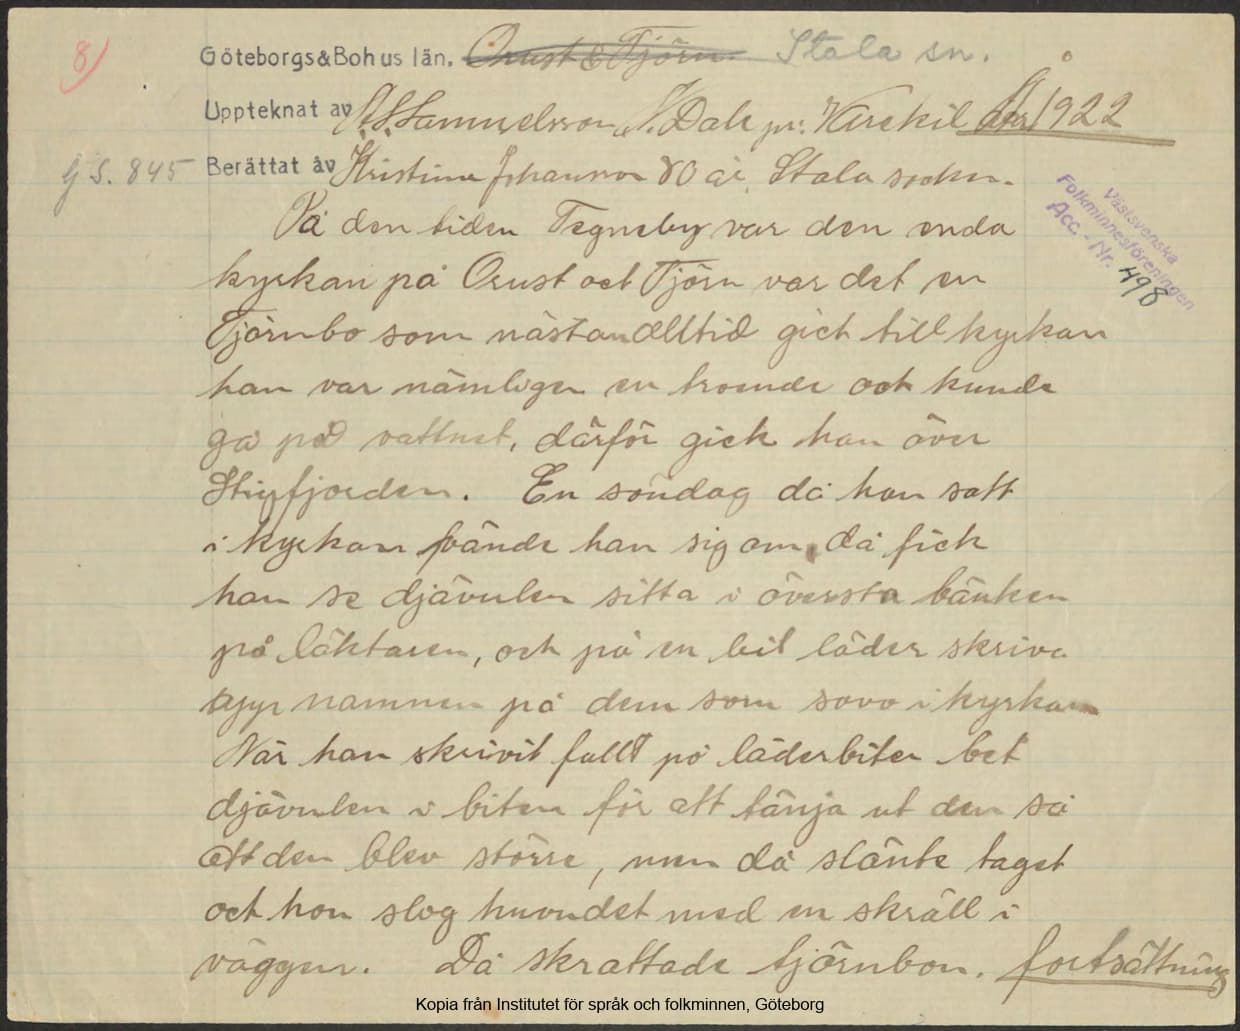 8)
Göteborgs&Bohus län. Orust & Tjörn Stala sn.
Uppteknat av A.S. Samuelsson N. Dale pr. Kärekil År 1922
G S. 845 Berättat av Kristina Johansson 80 år, Stala socken.
Västsvenska
Folkminnesföreningen
Acc.-Nr. 498
På den tiden Tegneby var den enda
kyrkan på Orust och Tjörn var det en
Tjörnbo som nästan alltid gick till kyrkan
han var nämligen en troende och kunde
gå på vattnet, därför gick han över
Stigfjorden. En söndag då han satt
i kyrkan vände han sig om, då fick
han se djävulen sitta i översta bänken
på läktaren, och på en bit läder skriva
upp namnen på dem som sovo i kyrkan
När han skrivit fullt på läderbiten bet
djävulen i biten för att tänja ut den så
att den blev större, men då slänte taget
och hon slog huvudet med en skräll i
väggen. Då skrattade tjörnbon. fortsättning
Kopia från Institutet för språk och folkminnen, Göteborg